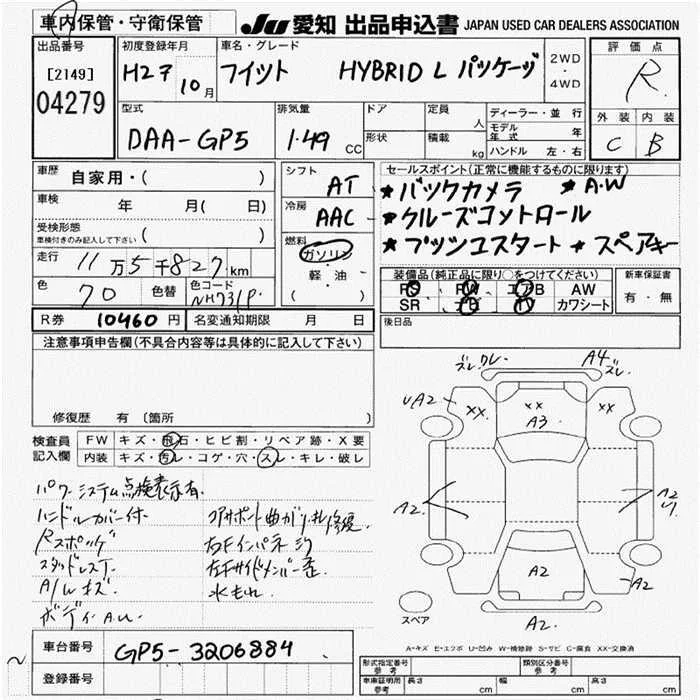 車内保管・守衛保管
JU 愛知 出品申込書 JAPAN USED CAR DEALERS ASSOCIATION
出品番号
[2149]
04279
初度登録年月
H27 10月
車名・グレード
フイツト HYBRID L パッケージ
2WD
・
4WD
評価点
R
外装 内装
C B
型式
DAA-GP5
排気量
1.49 CC
ドア
形状
定員
人
積載
kg
ディーラー・並行
モデル年式 年
ハンドル 左・右
車歴
自家用・( )
車検 年 月( 日)
受検形態
車検付きのみ記入して下さい ( )
走行 11万5千827km
色 70 色替 色コード NH731P
シフト AT
冷房 AAC
燃料
ガソリン
軽・油
( )
セールスポイント(正常に機能するものに限ります)
★バックカメラ ★A.W
★クルーズコントロール
★プッシュスタート ★スペアキー
装備品(純正品に限り○をつけてください)
PS PW エアB AW
SR カワシート
新車保証書
有・無
R券 10460円 名変通知期限 月 日
後日品
注意事項申告欄(不具合内容等は具体的に記入して下さい)
修復歴 有 〔箇所
検査員記入欄
FW キズ・飛石・ヒビ割・リペア跡・X要
内装 キズ・汚レ・コゲ・穴・スレ・キレ・破レ
パワーシステム点検表示有
ハンドルカバー付
スタッドレス
A/W キズ
右Fインパネ
左Fサイドメンバー歪
水もれ
ズレ ワレ
A4
ズレ
UA2
XX
XX
XX
A3
A2
A2
A2
A2
A2
スペア
A-キズ E-エクボ U-凹み W-補修跡 S-サビ C-腐食 XX-交換済
車台番号 GP5-3206884
登録番号
型式指定番号 参考
類別区分番号 参考
車庫証明用 参考 長さ cm 幅 cm 高さ cm